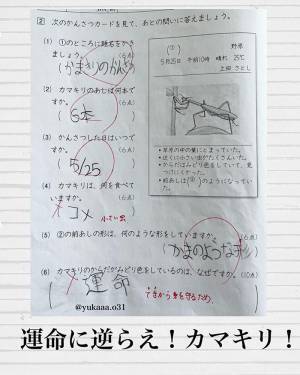 2 次のかんさつカードを見て、あとの問いに答えましょう。
(1) ①のところに題名をかきましょう。 (6点)
(かまきりのかんさつ
(2) カマキリのあしは何本ですか。 (6点)
6本
(3) かんさつした日はいつですか。 (6点)
5/25
(4) カマキリは、何を食べていますか。 (6点)
コメ 小さい虫
(5) ②の前あしの形は、何のような形をしていますか。 (6点)
(かまのような形
(6) カマキリのからだがみどり色をしているのは、なぜですか。 (10点)
運命
てきから身を守るため。
( ① ) 野原
5月25日 午前10時 晴れ 25℃
上田 さとし
・草原の中の葉にとまっていた。
・近くに小さい虫がたくさんいた。
・からだがみどり色をしていて、見つけにくかった。
・前あしは( ② )のようになっていた。
@yukaaa.o31
運命に逆らえ!カマキリ!